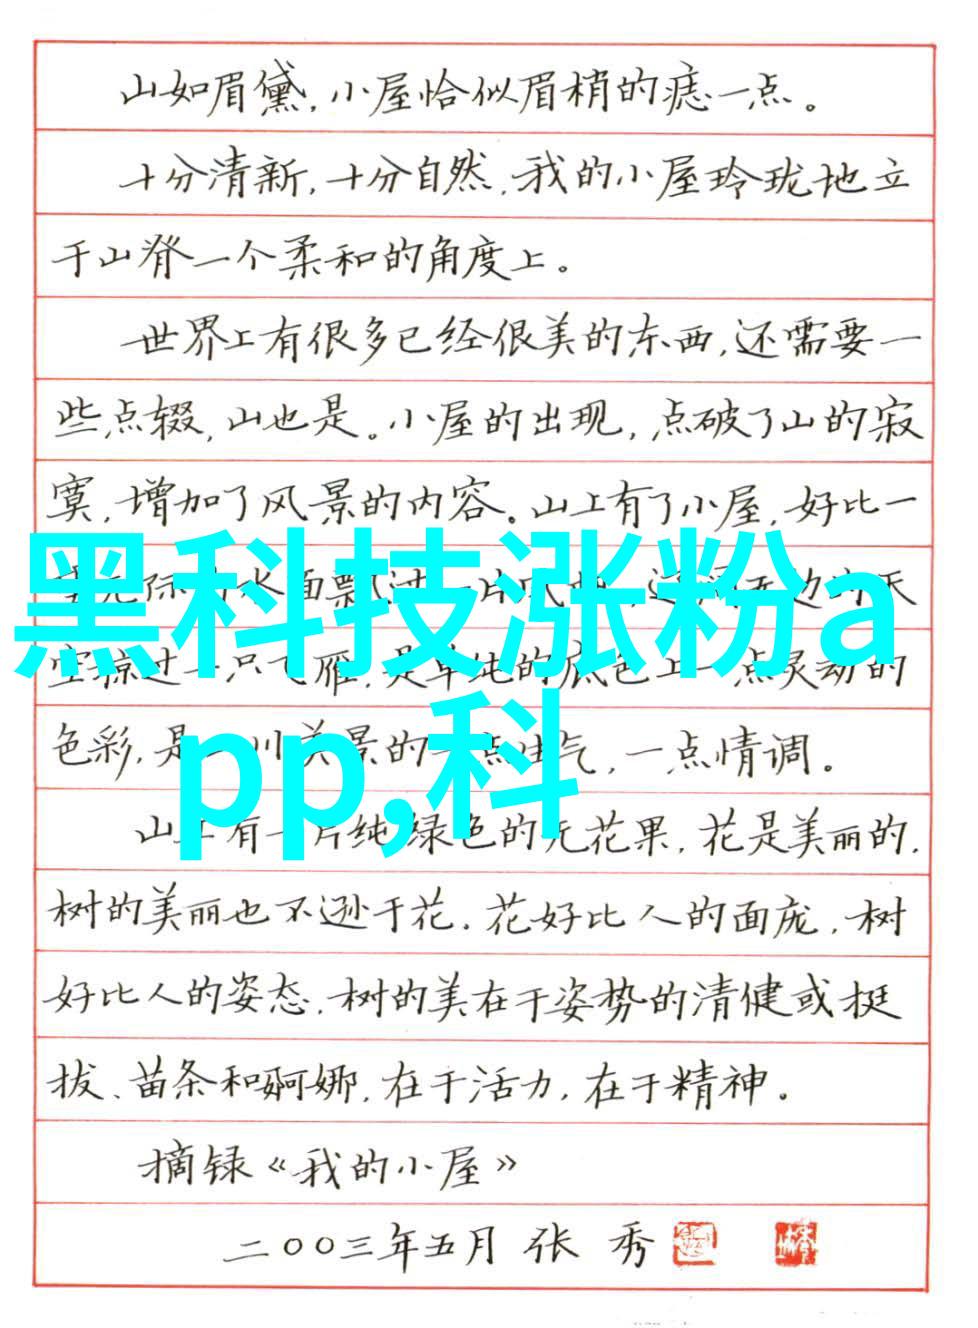 山如眉黛，小屋恰似眉梢的痣一点。
十分清新，十分自然，我的小屋玲珑地立
于山脊一个柔和的角度上。
世界上有很多已经很美的东西，还需要一
些点缀，山也是。小屋的出现，点破了山的寂
寞，增加了风景的内容。山上有了小屋，好比一
黑科技涨粉a
pp,科
空掠过一只飞雁，是单纯的底色上一点灵动的
色彩，是一川美景的一点生气，一点情调。
山上有一片纯绿色的无花果，花是美丽的，
树的美丽也不逊于花。花好比人的面庞，树
好比人的姿态。树的美在于姿势的清健或挺
拔、苗条和婀娜，在于活力，在于精神。
摘録《我的小屋》
二〇〇三年五月 张 秀